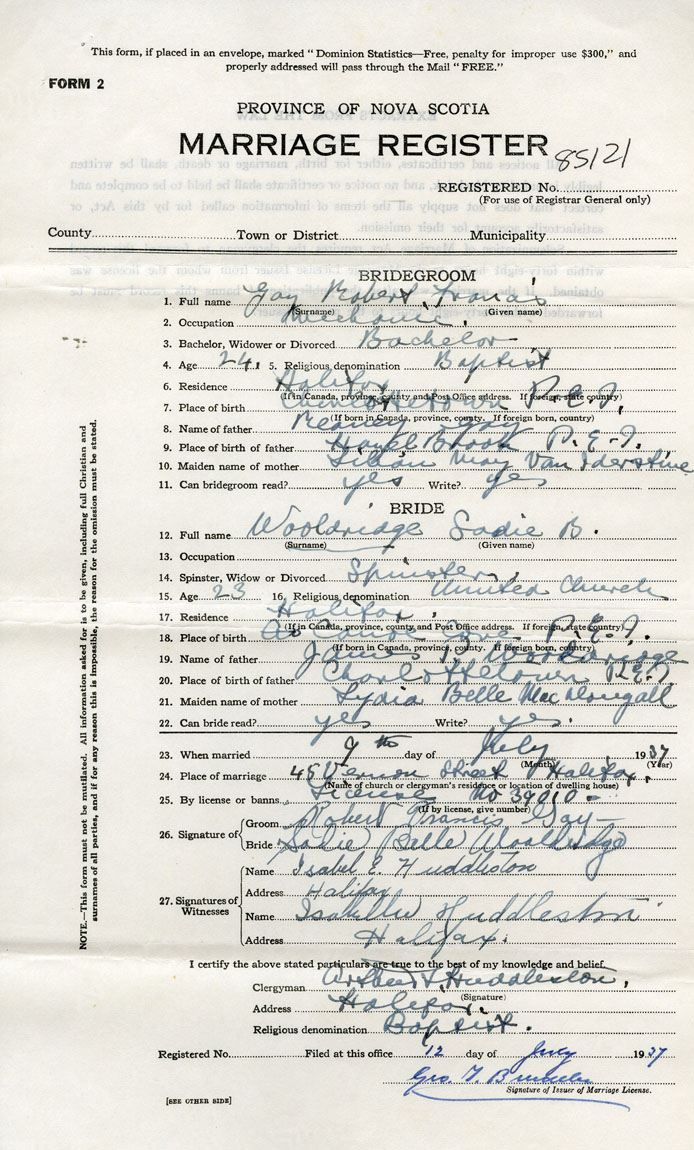 This form, if placed in an envelope, marked "Dominion Statistics—Free, penalty for improper use $300," and
properly addressed will pass through the Mail "FREE."
FORM 2
PROVINCE OF NOVA SCOTIA
MARRIAGE REGISTER
85121
REGISTERED No.
(For use of Registrar General only)
County Town or District Municipality
BRIDEGROOM
1. Full name Gay Robert Francis
(Surname) (Given name)
2. Occupation Mechanic
3. Bachelor, Widower or Divorced Bachelor
4. Age 24 5. Religious denomination Baptist
6. Residence Halifax
(If in Canada, province, county and Post Office address. If foreign, state country)
7. Place of birth Charlottetown P.E.I.
(If born in Canada, province, county. If foreign born, country)
8. Name of father Gay
9. Place of birth of father Hazel Brook P.E.I.
10. Maiden name of mother Lilian May Van Iderstine
11. Can bridegroom read? yes Write? yes
BRIDE
12. Full name Wooldridge Sadie B.
(Surname) (Given name)
13. Occupation
14. Spinster, Widow or Divorced Spinster
15. Age 23 16. Religious denomination United Church
17. Residence Halifax
(If in Canada, province, county and Post Office address. If foreign, state country)
18. Place of birth Cove P.E.I.
(If born in Canada, province, county. If foreign born, country)
19. Name of father James Wooldridge
20. Place of birth of father Charlottetown P.E.I.
21. Maiden name of mother Lydia Belle MacDougall
22. Can bride read? yes Write? yes.
23. When married 9th day of July 1937
(Month) (Year)
24. Place of marriage 45 Vernon Street Halifax
(Name of church or clergyman's residence or location of dwelling house)
25. By license or banns License No 39010
(If by license, give number)
26. Signature of
Groom Robert Francis Gay
Bride Sadie Belle Wooldridge
27. Signatures of Witnesses
Name Isabel E. Huddleston
Address Halifax
Name Isabella Huddleston
Address Halifax.
I certify the above stated particulars are true to the best of my knowledge and belief.
Clergyman Arthur Huddleston,
(Signature)
Address Halifax.
Religious denomination Baptist.
Registered No. Filed at this office 12 day of July 1937
Geo. T.
Signature of Issuer of Marriage License.
[SEE OTHER SIDE]
NOTE.—This form must not be mutilated. All information asked for is to be given, including full Christian and
surnames of all parties, and if for any reason this is impossible, the reason for the omission must be stated.